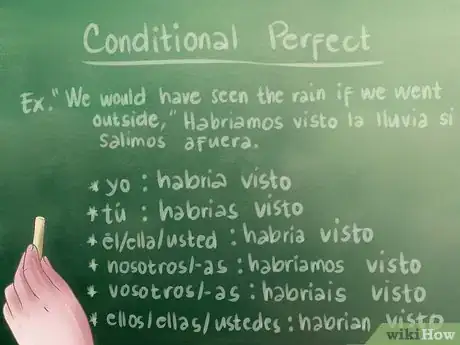 Conditional Perfect
Ex. "We would have seen the rain if we went
outside," Habriamos visto la lluvia si
salimos afuera.
* yo : habria visto
* tú : habrias visto
* él/ella/usted : habria visto
* nosotros/-as : habriamos visto
* vosotros/-as : habriais visto
* ellos/ellas/ustedes : habrian visto
wikiHow